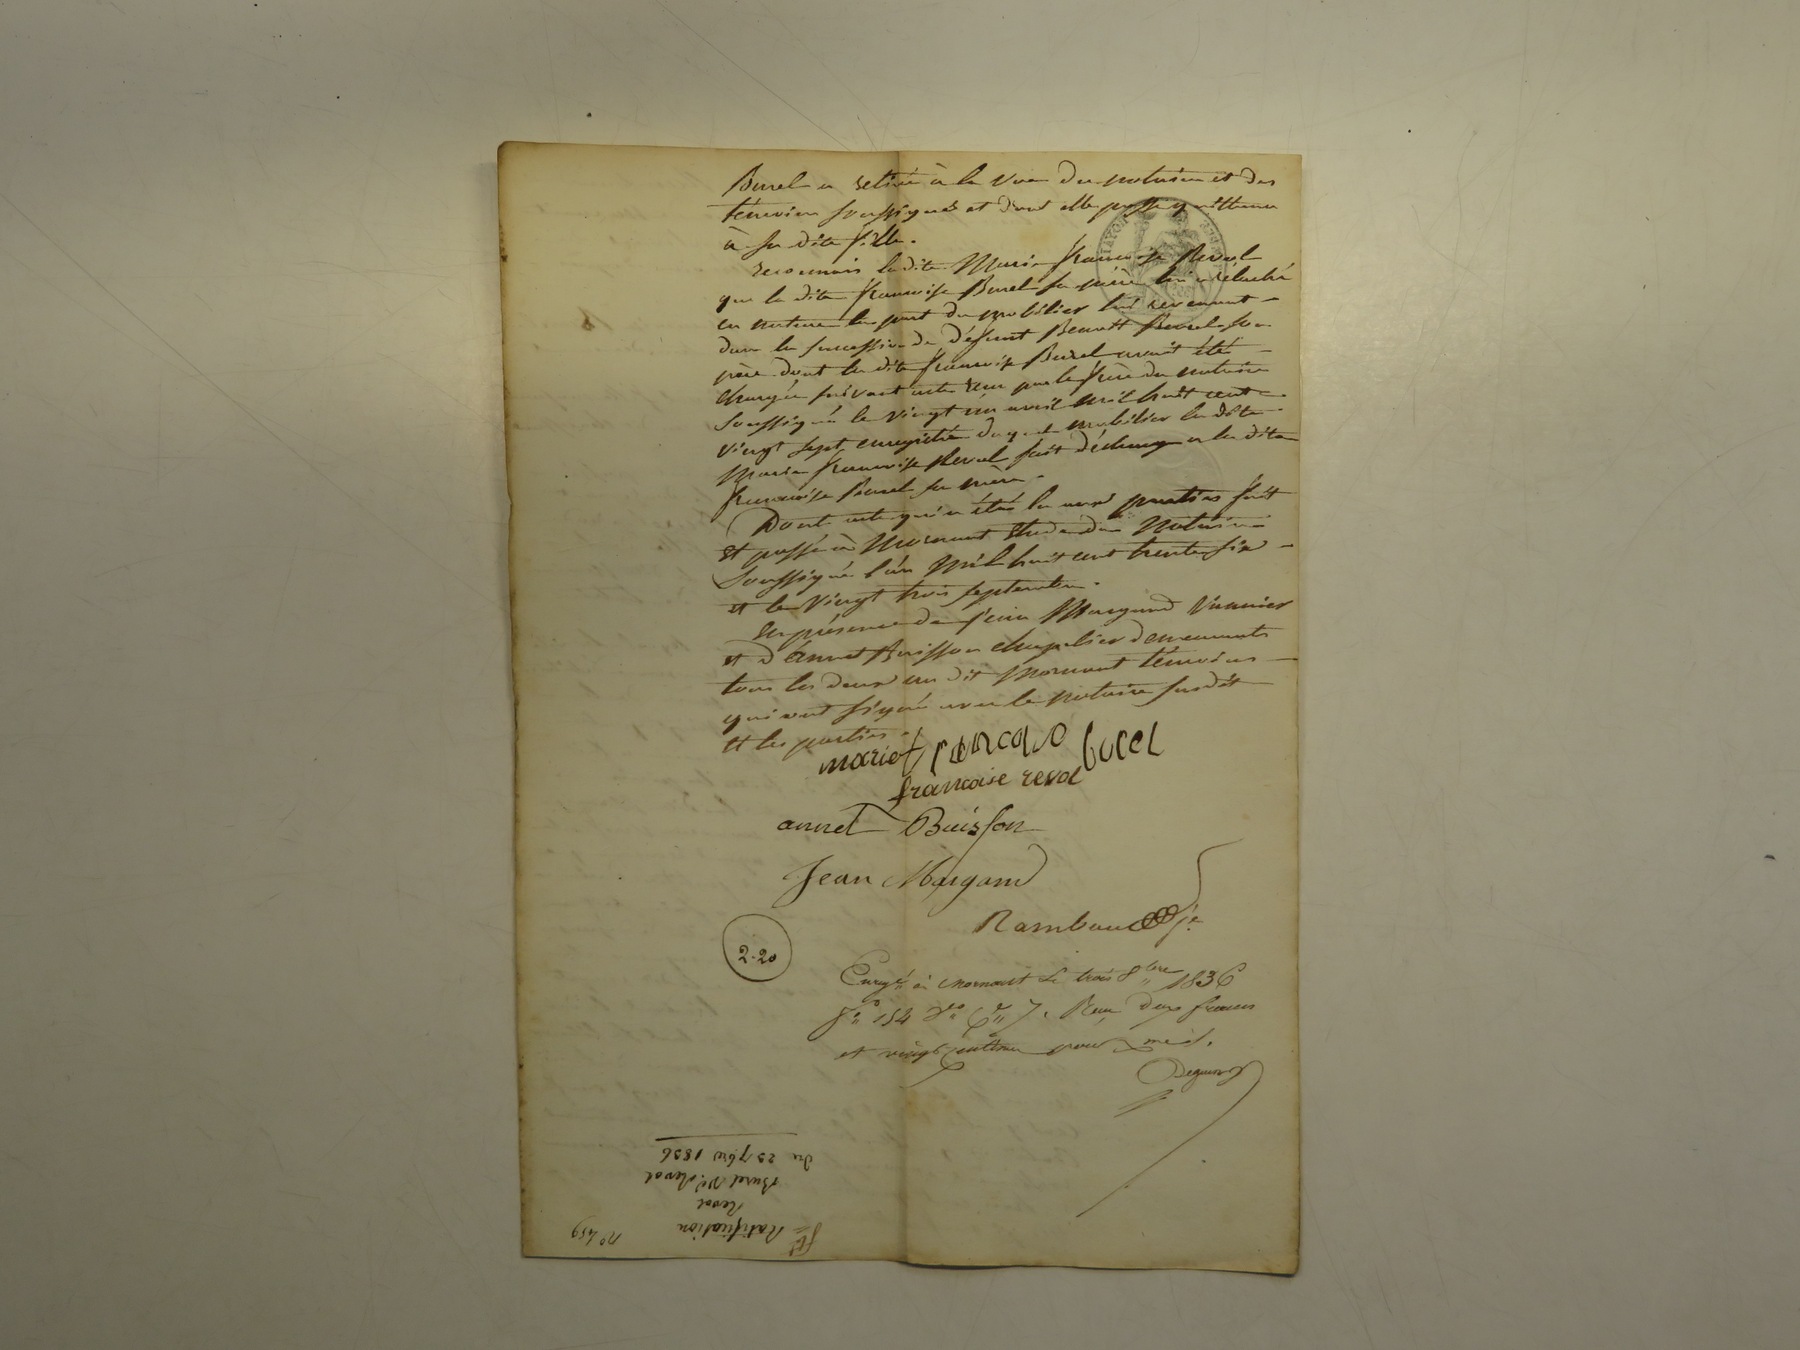 Burel a retiré à la vue du notaire et des
témoins soussignés et dont elle passe quittance
à sa dite fille.
reconnais ladite Marie françoise Reval
que la dite françoise Burel sa mère lui a relaché
en nature la part du mobilier lui revenant
dans la succession de défunt Benoit Reval son
père dont la dite françoise Burel avait été
chargée suivant acte reçu par le frère du notaire
soussigné le vingt un avril mil huit cent
vingt sept enregistré duquel mobilier la dite
Marie françoise Reval fait décharge a la dite
françoise Burel sa mère.
Dont acte qui a été lu aux parties fait
et passé à Mornant Etude du Notaire
soussigné l'an Mil huit cent trente six
et le vingt trois septembre.
En présence de Jean Margand
et d'annet Buisson chapelier demeurants
tous les deux au dit Mornant témoins
qui ont signé avec le notaire susdit
et les parties.
marie françoise burel
françoise reval
annet Buisson
Jean Margand
Rambaud je
2-20
Enregé à Mornant le trois 8bre 1836
fo 154 Vo Ce 7. Reçu deux francs
et vingt centimes pour
No 459
Ratification
Reval
Burel Ve Reval
du 23 7bre 1836